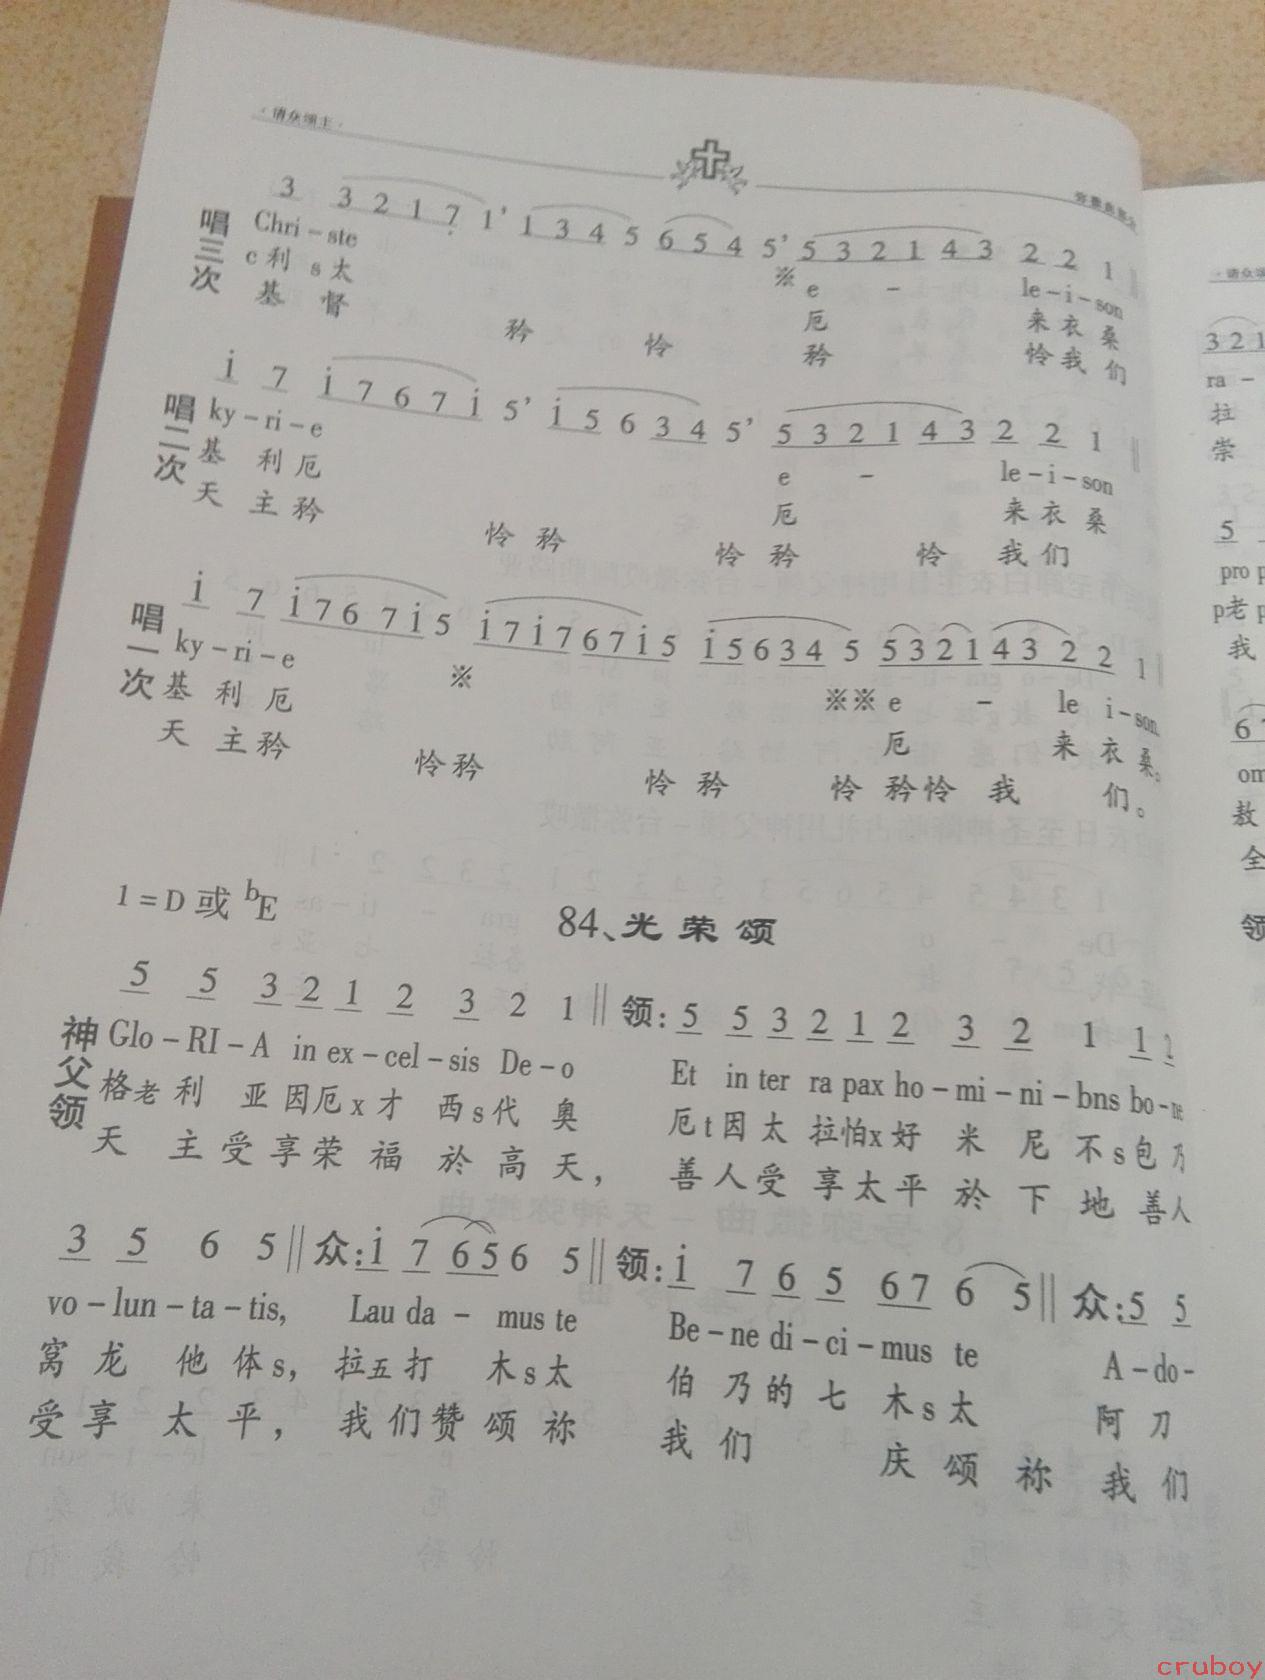 ·请众颂主·
3 3 2 1 7̣ 1’ 1 3 4 5 6 5 4 5’ 5 3 2 1 4 3 2 2 1
唱三次
Chri－ste ※ e － le－i－son
c利 s太 厄 来衣桑
基 督 矜 怜 矜 怜我们
i 7 i 7 6 7 i 5’ i 5 6 3 4 5’ 5 3 2 1 4 3 2 2 1
唱二次
ky－ri－e e － le－i－son
基 利厄 厄 来衣桑
天 主矜 怜矜 怜矜 怜 我们
i 7 i 7 6 7 i 5 i 7 i 7 6 7 i 5 i 5 6 3 4 5 5 3 2 1 4 3 2 2 1
唱一次
ky－ri－e ※ ※※ e － le i－son
基 利 厄 厄 来 衣 桑。
天 主矜 怜矜 怜 矜 怜 矜怜 我 们。
1＝D 或 bE
84、光荣颂
5 5 3 2 1 2 3 2 1 ‖ 领: 5 5 3 2 1 2 3 2 1 1 1
神父领
Glo－RI－A in ex－cel－sis De－o Et in ter ra pax ho－mi－ni－bns bo－ne
格老 利 亚因厄x才 西s代 奥 厄t因太 拉怕x好 米 尼 不s包乃
天 主受享荣 福 於高天， 善人受 享太平 於 下 地 善人
3 5 6 5 ‖ 众: i 7 6 5 6 5 ‖ 领: i 7 6 5 6 7 6 5 ‖ 众: 5 5
vo－lun－ta－tis, Lau da－ mus te Be－ne di－ci－mus te A－do-
窝 龙 他 体s, 拉五打 木s太 伯 乃的 七 木s太 阿 刀
受享 太 平， 我们赞颂祢 我 们 庆 颂 祢 我 们
·请众颂
3 2 1
ra－
拉
崇
5
pro p
p老p
我
6 7
om
敖
全
领
cruboy